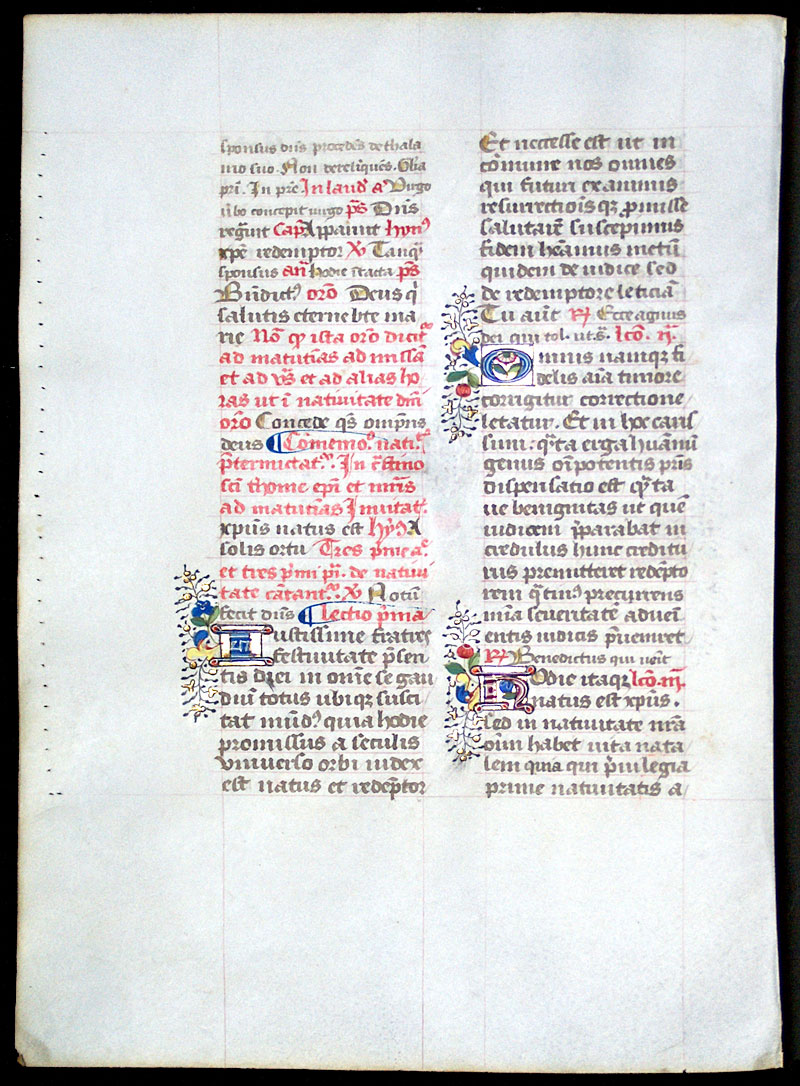 sponsus dn̄s procedēs de thala
mo suo. Non derelīques. Gl̄ia
pr̄i. In pr̄ie In laud̄ a͠ Virgo
ūbo concepit virgo ps̄ Dn̄s
regn̄uit Cap̄ Apparuit hym⁹
xp̄e redemptor ℣ Tanq̄
sponsus an̄ hodie ītacta ps̄
Bn̄dict⁹ orō Deus q̄
salutis eterne bt̄e ma
rie Nō q̄ ista orō dicit᷑
ad matutīas ad missā
et ad v̄s et ad alias ho
ras ut ī natiuitate dn̄i
orō Concede qs̄ omp̄ns
deus Cōmemo᷑ nati᷑
p̄termictat᷑. In crastino
sc̄i thome ep̄i et mr̄is
ad matutīas Inuitat.
xp̄us natus est hym̄ A
solis ortu Tres p̄me a᷑
et tres p̄mi pī. de natiui
tate cātant᷑ ℣ Notū
fecit dn̄s Lectio p̄ma
Iustissime fratres
festiuitate p̄sen
tis diei in om̄e se gau
diū totus ubiq̄ susci
tat mūd⁹ quia hodie
promissus a seculis
vniuerso orbi iudex
est natus et redēptor
Et necesse est ut in
cōmune nos omnes
qui futuri examinis
resurrectiōis qz promisse
salutarē suscepimus
fidem heāmus metū
quidem de iudice sed
de redemptore leticiā
Tu aūt ℟ Ecce agnus
dei qui tol. ut s̄. lcō. ii.
Omnis namqz fi
delis aīa timore
corrigitur correctione
letatur. Et in hoc cariſ
simi: q̄ta erga humanū
genus oīpotentis p̄ris
dispensatio est q̄ ta
ue benignitas ut quē
iudicem p̄parabat in
credulus hunc creditu
rus premitteret redēpto
rem q̄tin⁹ precurrens
mīa seueritatē adueī
entis iudicis p̄ueniret
℟ Benedictus qui ueīt
Hodie itaqz lcō. iii.
natus est xp̄us.
sed in natiuitate nr̄a
oīm habet uita nata
lem quia qui p̄iuilegia
prime natiuitatis a